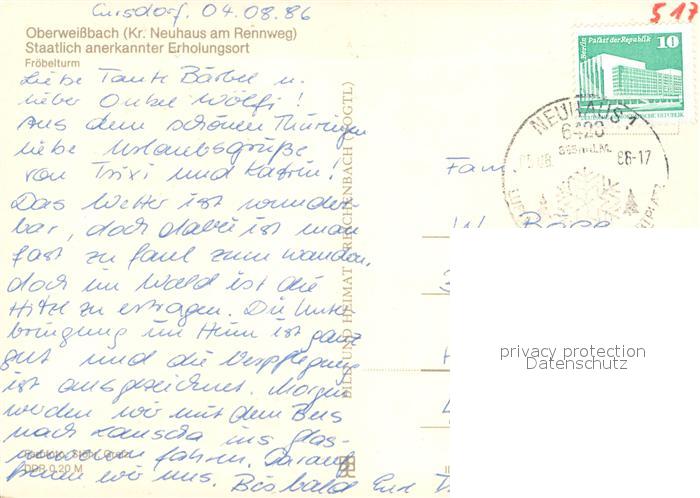 Cursdorf, 04.08.86
Oberweißbach (Kr. Neuhaus am Rennweg)
Staatlich anerkannter Erholungsort
Fröbelturm
Liebe Tante Bärbel u.
lieber Onkel Wölfi!
Aus dem schönen Thüringen
liebe Urlaubsgrüße
von Trixi und Katrin!
Das Wetter ist wunder-
bar, doch dabei ist man
fast zu faul zum wandern,
doch im Wald ist die
Hitze zu ertragen. Die Unter-
bringung im Heim ist ganz
gut und die Verpflegung
ist ausgezeichnet. Morgen
werden wir mit dem Bus
nach Lauscha ins Glas-
museum fahren. Darauf
freuen wir uns. Bis bald Eure
DDR 0,20 M
BILD UND HEIMAT REICHENBACH (VOGTL)
517
Berlin Palast der Republik
10
NEUHAUS 1
6420
86-17
Fam.
W.
privacy protection
Datenschutz